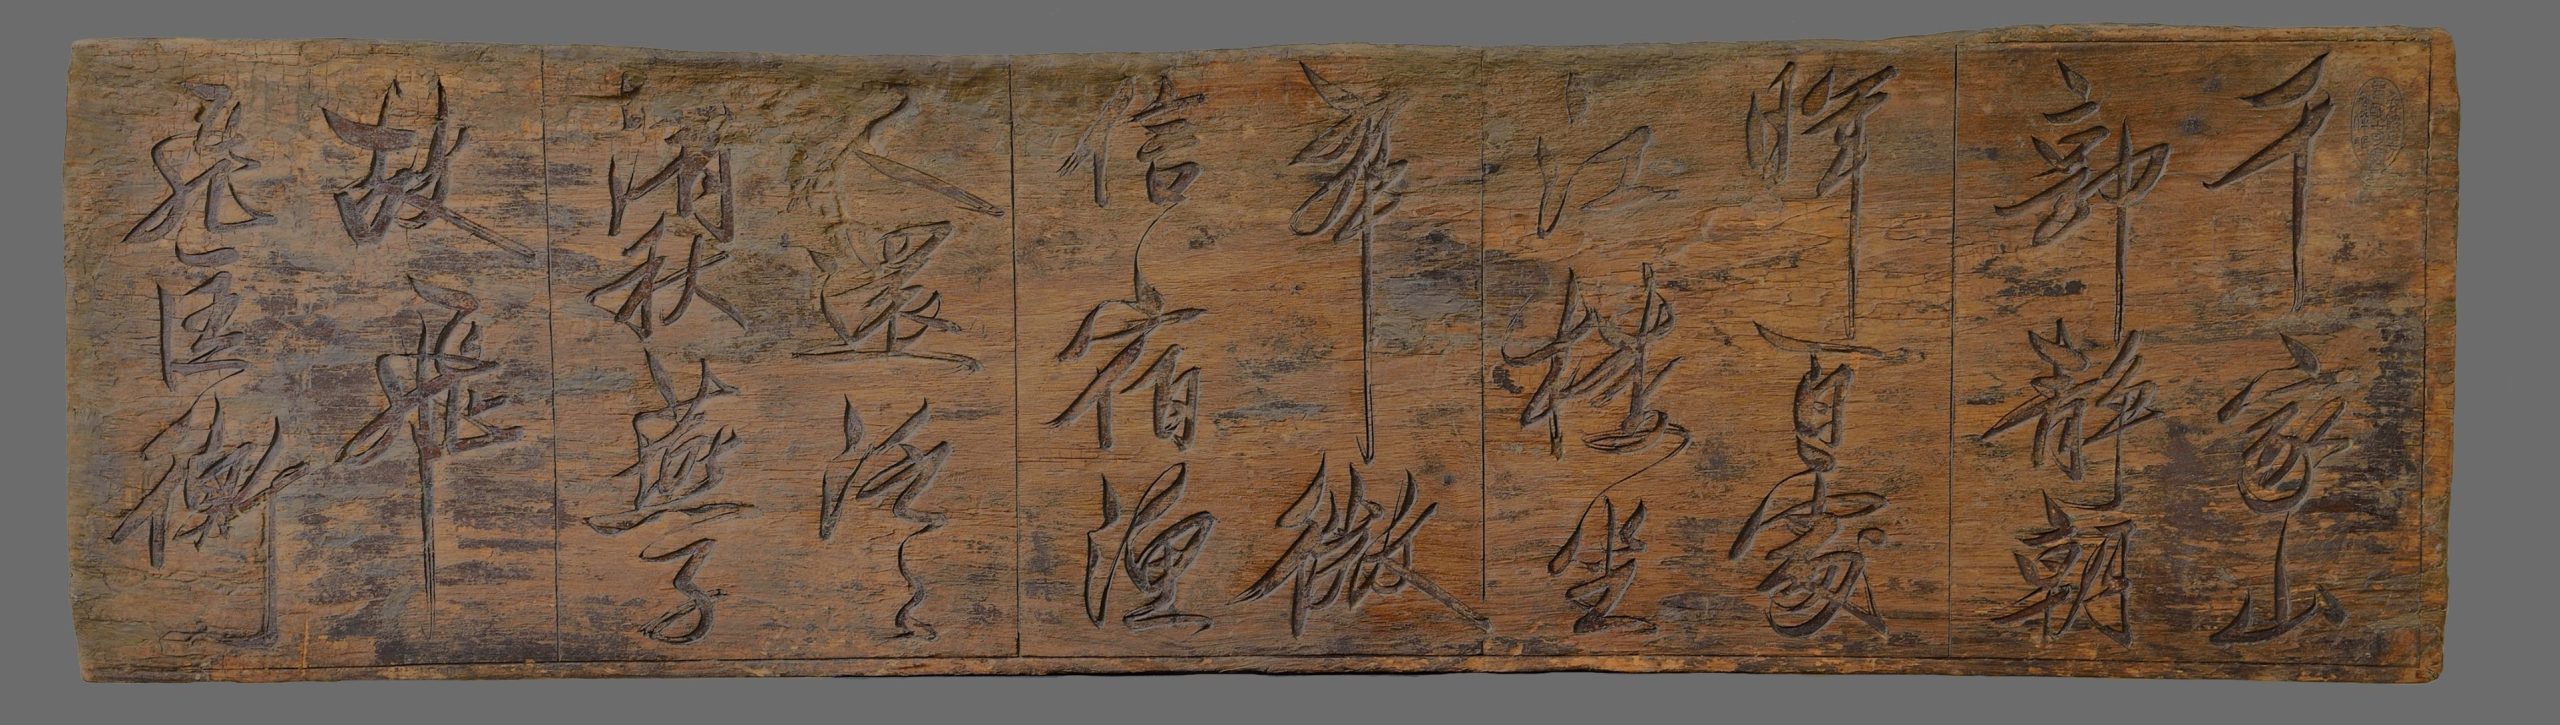 千家山
郭静朝
暉百處
江樓坐
翠微
信宿漁
人還泛々
清秋燕子
故飛
飛匡衡